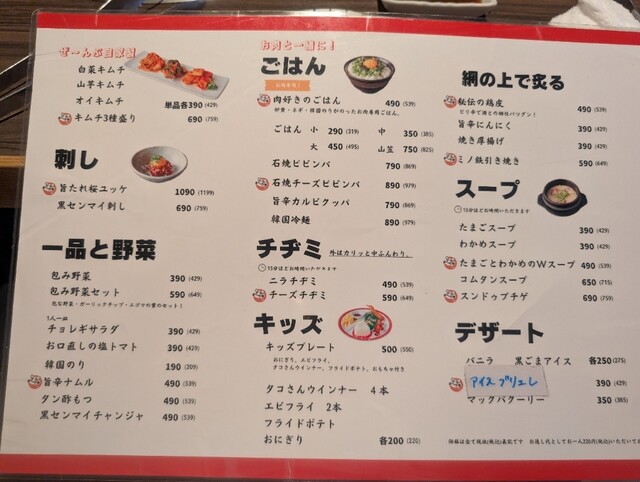 ぜ〜んぶ自家製
白菜キムチ
山芋キムチ
オイキムチ 単品各390 (429)
キムチ3種盛り 690 (759)
刺し
旨たれ桜ユッケ 1090 (1199)
黒センマイ刺し 690 (759)
一品と野菜
包み野菜 390 (429)
包み野菜セット 590 (649)
包む野菜・ガーリックチップ・エゴマの葉のセット！
1人一皿
チョレギサラダ 390 (429)
お口直しの塩トマト 390 (429)
韓国のり 190 (209)
旨辛ナムル 490 (539)
タン酢もつ 490 (539)
黒センマイチャンジャ 490 (539)
お肉と一緒に！
ごはん
肉好きのごはん 490 (539)
ごはん 小 290 (319) 中 350 (385)
大 450 (495) 山盛 750 (825)
石焼ビビンバ 790 (869)
石焼チーズビビンバ 890 (979)
旨辛カルビクッパ 790 (869)
韓国冷麺 890 (979)
チヂミ 外はカリッと中ふんわり。
15分ほどお時間いただきます
ニラチヂミ 490 (539)
チーズチヂミ 590 (649)
キッズ
キッズプレート 500 (550)
おにぎり、エビフライ、
タコさんウインナー、フライドポテト、おもちゃ付き
タコさんウインナー 4本
エビフライ 2本
フライドポテト
おにぎり 各200 (220)
網の上で炙る
秘伝の鶏皮 490 (539)
ピリ辛で酒との相性バツグン！
旨辛にんにく 390 (429)
焼き厚揚げ 390 (429)
ミノ鉄引き焼き 590 (649)
スープ
10分ほどお時間いただきます
たまごスープ 390 (429)
わかめスープ 390 (429)
たまごとわかめのWスープ 490 (539)
コムタンスープ 650 (715)
スンドゥブチゲ 690 (759)
デザート
バニラ 黒ごまアイス 各250 (275)
アイスブリュレ 390 (429)
マックバクーリー 350 (385)